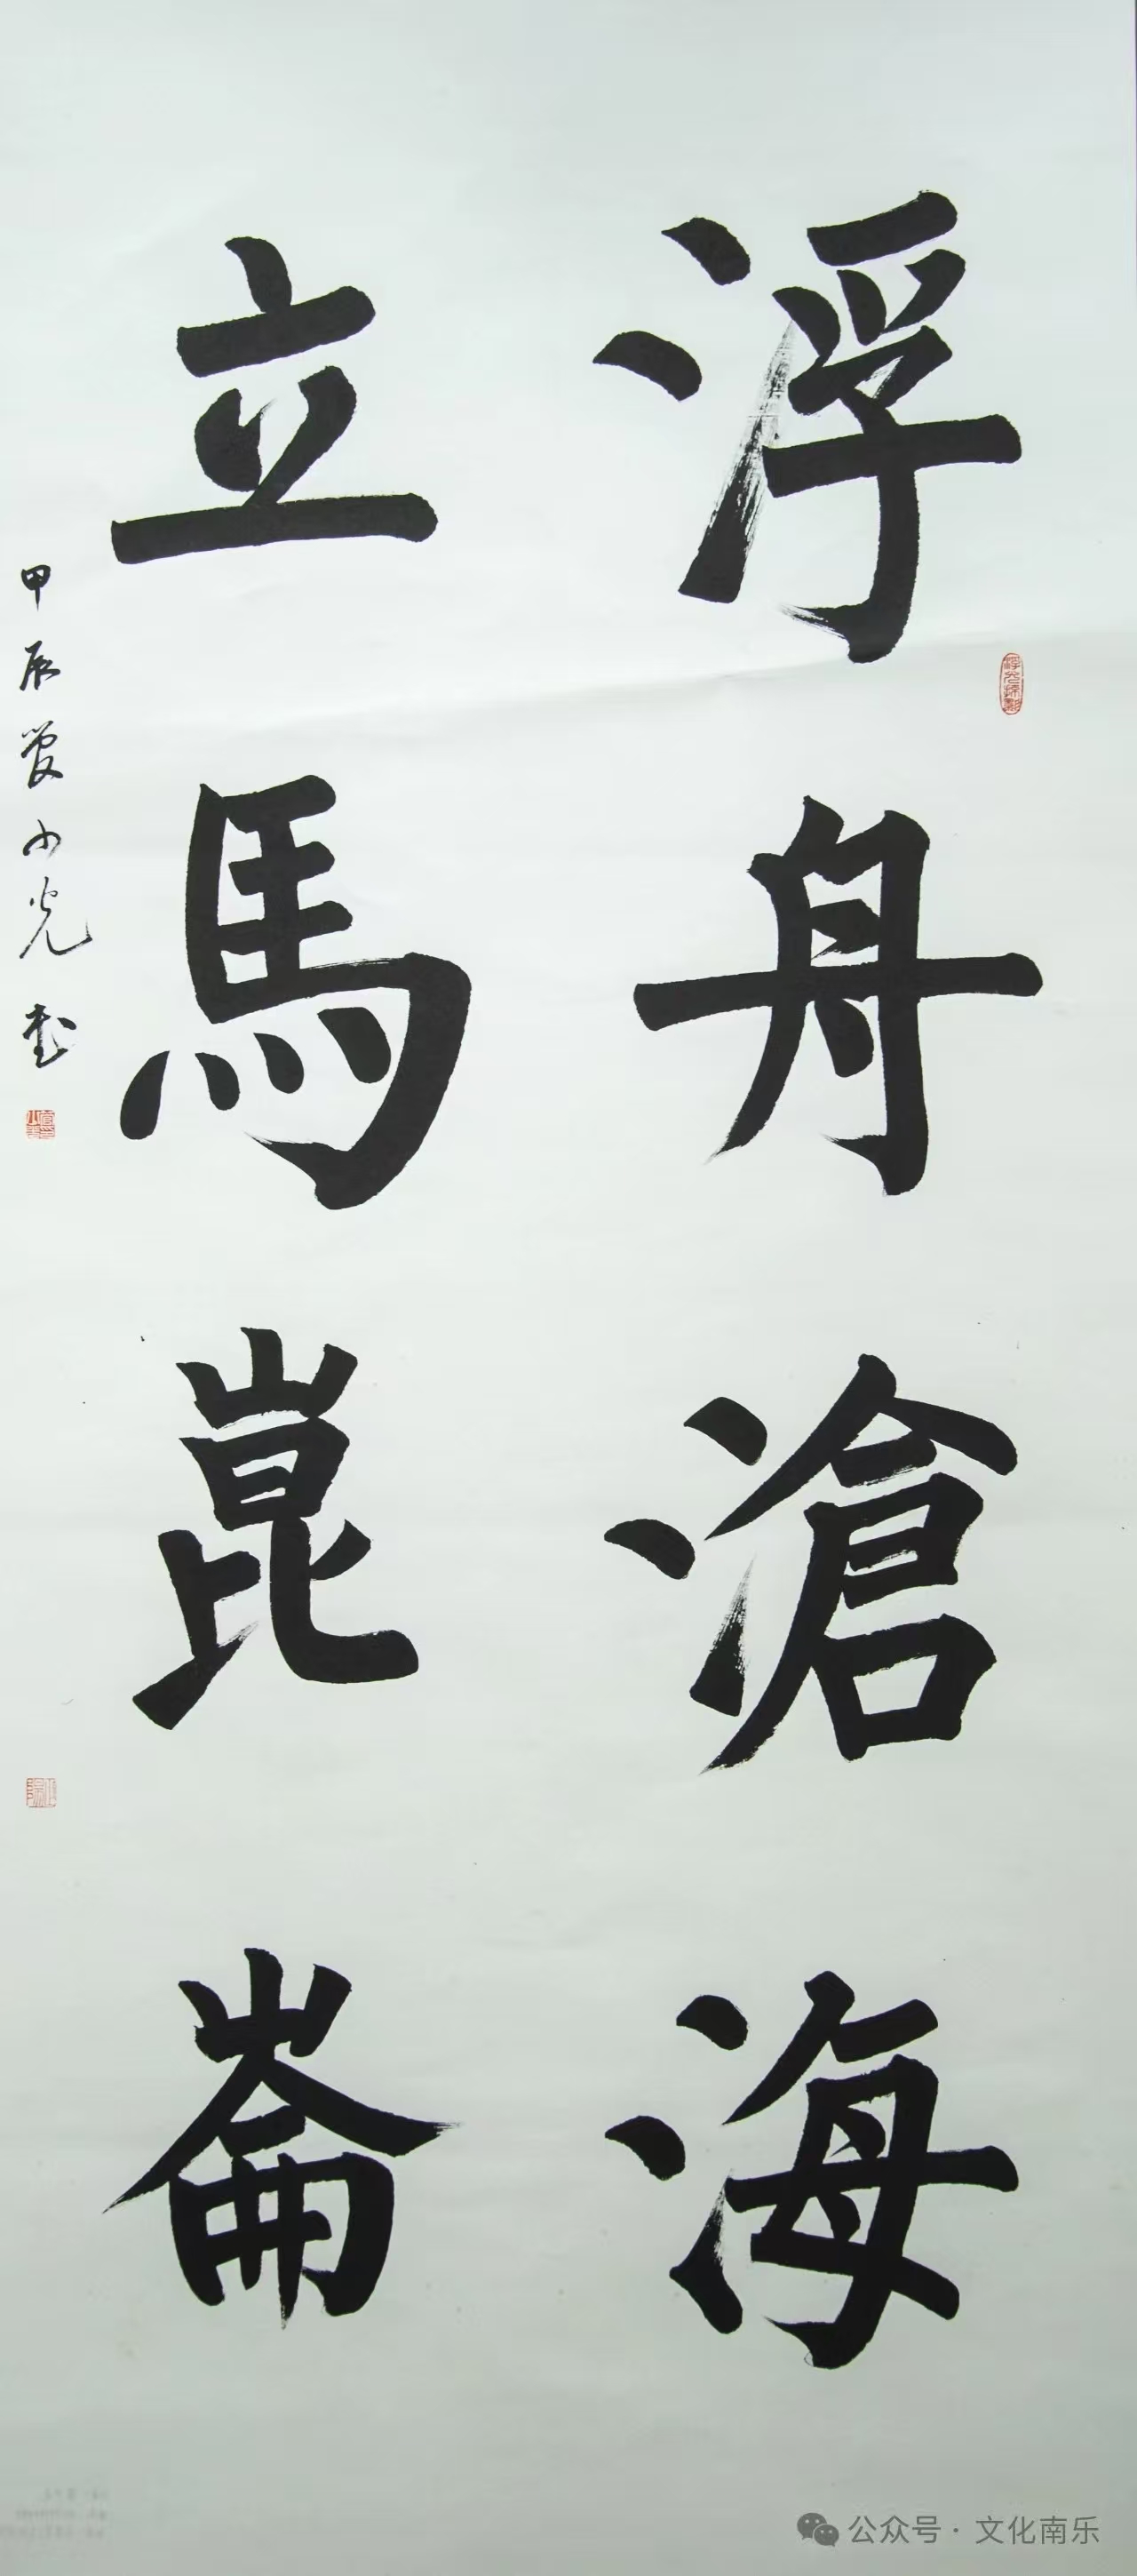 浮舟滄海
立馬崑崙
甲辰夏小光書
公众号 · 文化南乐